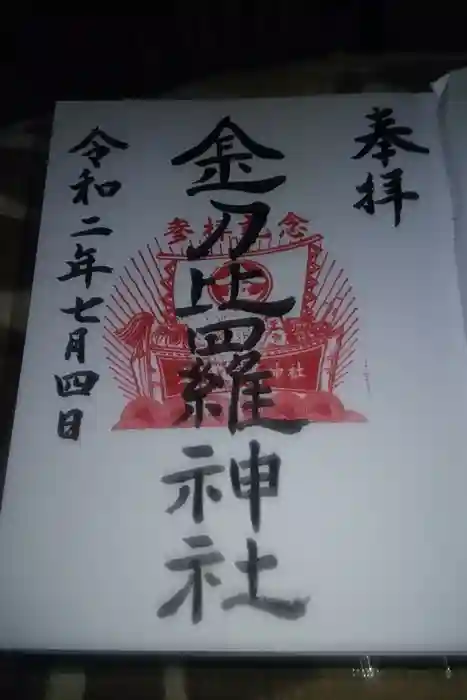 奉拝
参拝記念
金刀比羅神社
神社
令和二年七月四日